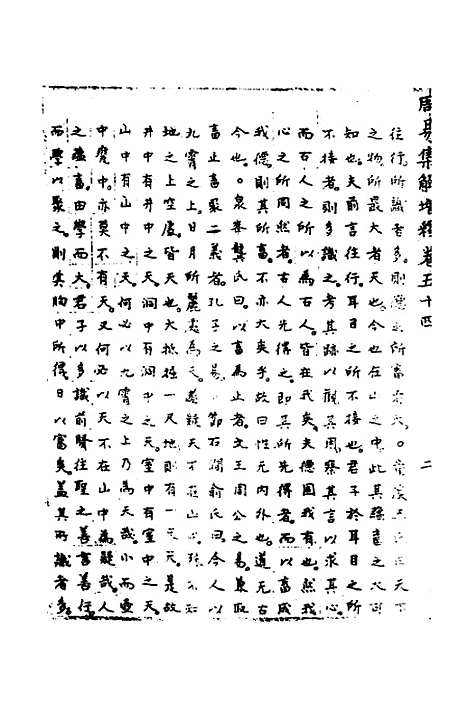 周易集解增釋卷五十四
二
往行所識者多則德之所畜者大。童溪王氏曰天下
之物所最大者天也今也在山之中此其蘊畜之大可
知也夫前言往行耳目之所不接也君子於耳目之所
不接者則多識之考其跡以觀其用察其言以求其心
而古人之所以為古人皆在我矣夫德固我有也然我
心之所同然者古人先得之即其所先得者而以畜成
我德則其所畜不亦大矣乎故曰性无内外也道无古
今也。泉峯龔氏曰以畜為止者文王周公之易兼取
畜止畜聚二義者孔子之易 節石澗俞氏曰今人以
九霄之上日月所麗處為天 疑天不 山 殊不知
地之上空虛皆天也大抵掘一尺地則有一尺天是故
井中有井中之天洞中有洞中之天室中有室中之天
山中有山中之天何必以九霄之上乃為天哉小而甕
中甕中亦莫不有天又何必以天不在山中為疑哉人
之蘊畜由學而大君子以多識前賢往聖之善言善行
而學以聚之則其胸中所得日以富矣蓋其所識者多